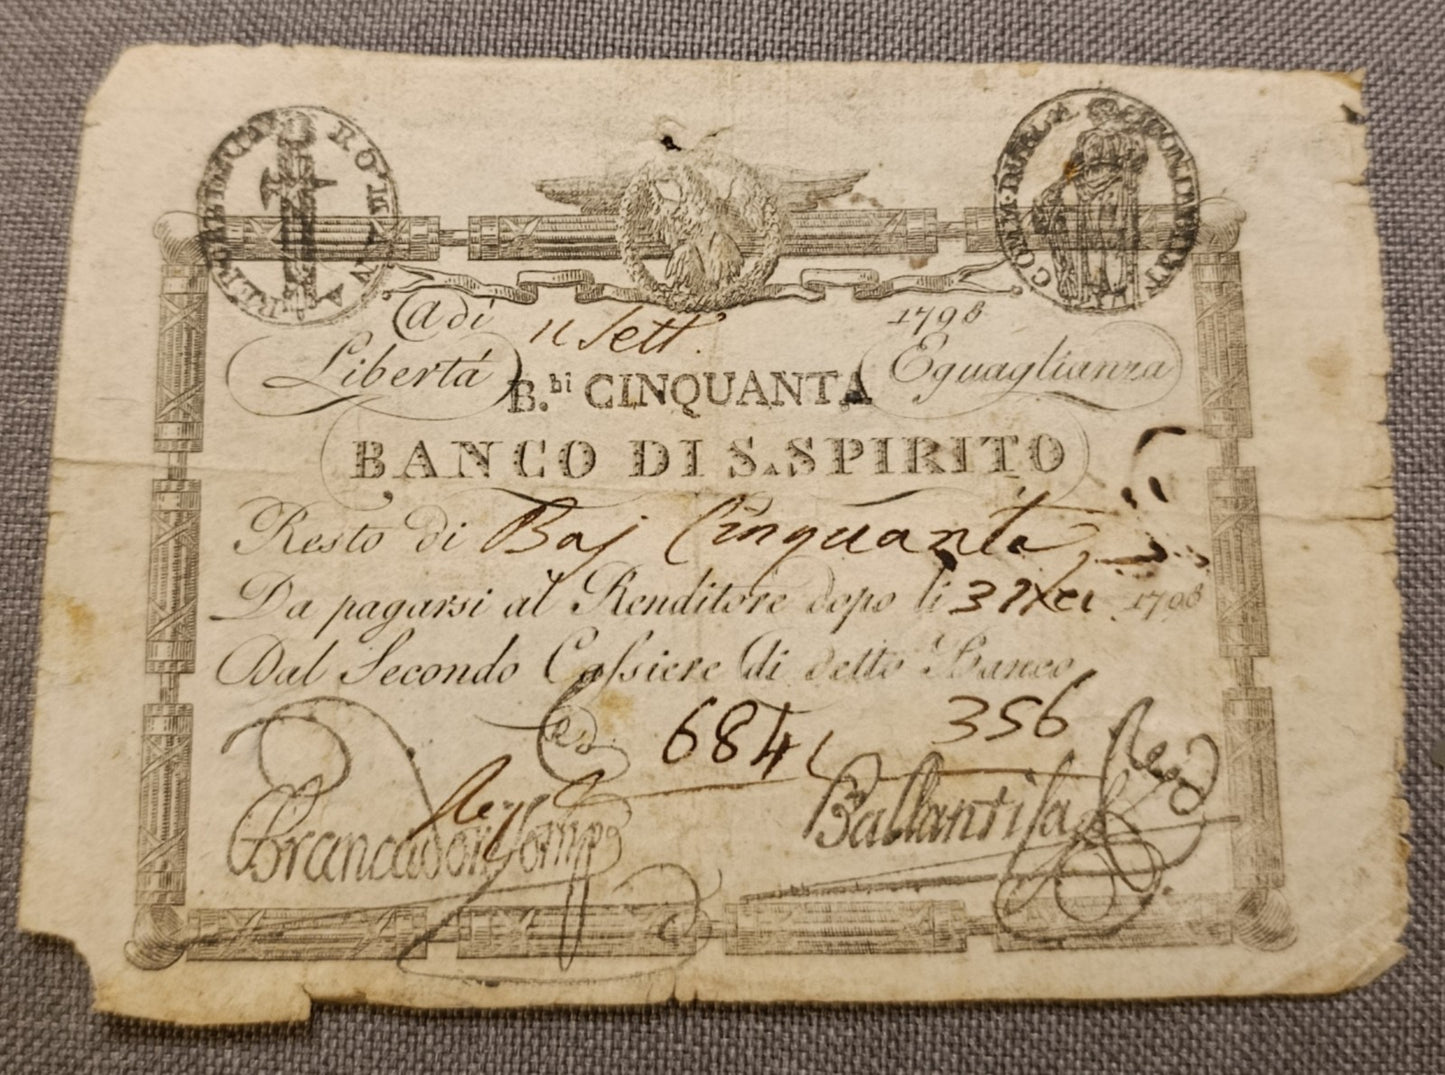 REPUBLICA ROMANA
COMM. DELLA CONTAB.
Adi 11 Sett. 1798
Libertá Eguaglianza
B.hi CINQUANTA
BANCO DI S. SPIRITO
Resto di Baj Cinquanta
Da pagarsi al Renditore dopo li 1798
Dal Secondo Cassiere di detto Banco
684 356
Ballanti